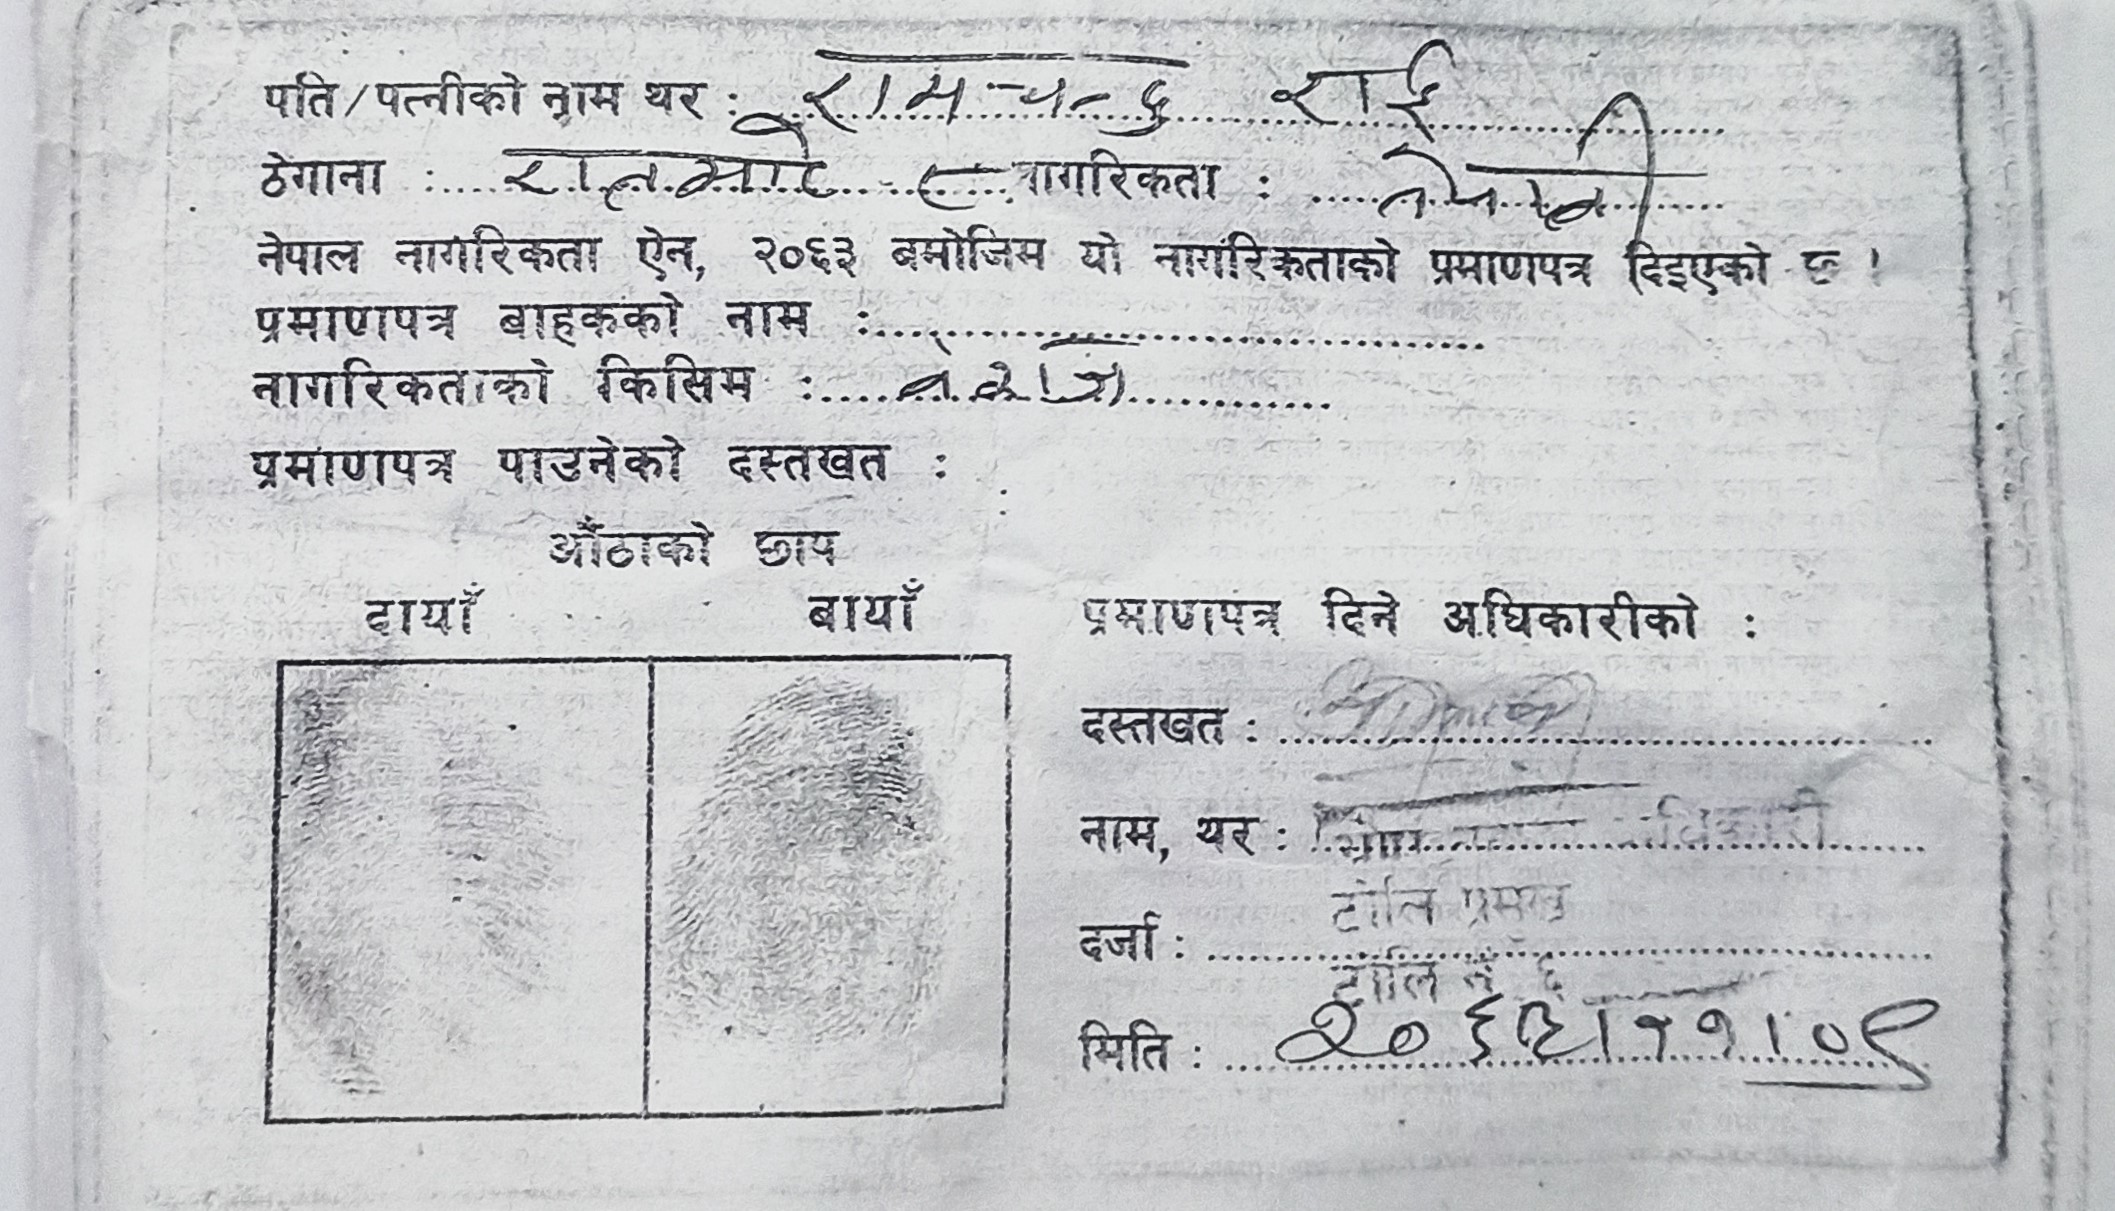 पति/पत्नीको नाम थर : रामचन्द्र राई
ठेगाना : रातमाटे ८ नागरिकता : नेपाली
नेपाल नागरिकता ऐन, २०६३ बमोजिम यो नागरिकताको प्रमाणपत्र दिइएको छ ।
प्रमाणपत्र बाहकको नाम :
नागरिकताको किसिम : वंशज
प्रमाणपत्र पाउनेको दस्तखत :
औंठाको छाप
दायाँ बायाँ
प्रमाणपत्र दिने अधिकारीको :
दस्तखत :
नाम, थर : अधिकारी
टोलि प्रमुख
दर्जा :
टोलि नं ६
मिति : २०६३।११।०९